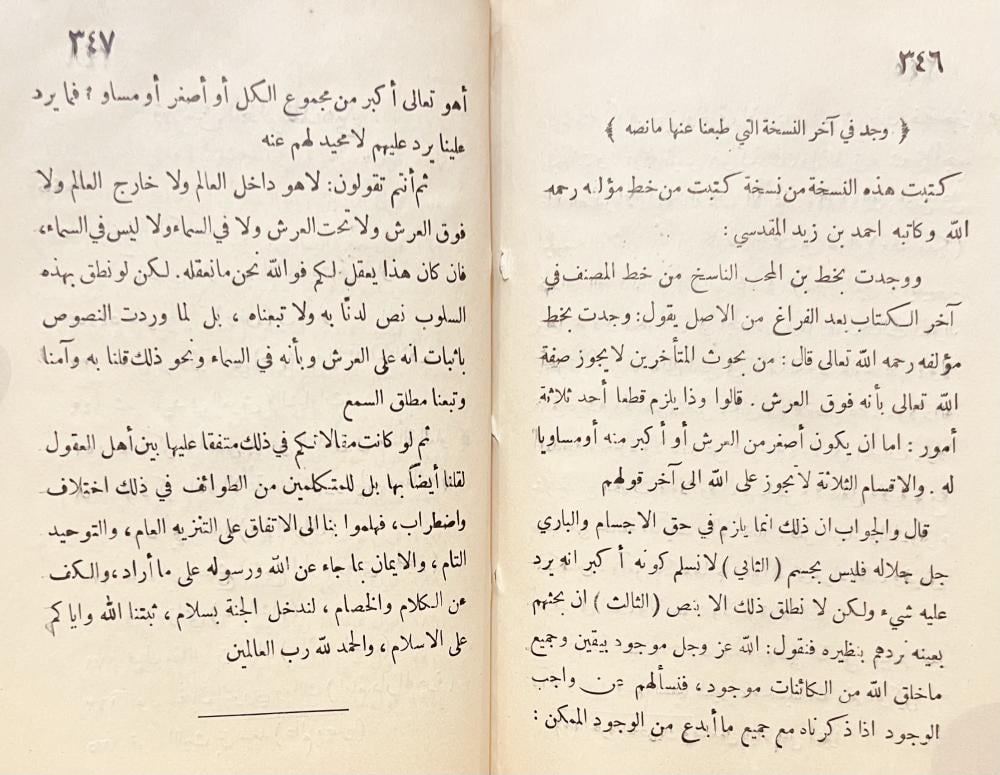 ٣٤٦
﴿ وجد في آخر النسخة التي طبعنا عنها مانصه ﴾
كتبت هذه النسخة من نسخة كتبت من خط مؤلفه رحمه
الله وكاتبه احمد بن زيد المقدسي :
ووجدت بخط بن المحب الناسخ من خط المصنف في
آخر الكتاب بعد الفراغ من الاصل يقول : وجدت بخط
مؤلفه رحمه الله تعالى قال : من بحوث المتأخرين لا يجوز صفة
الله تعالى بأنه فوق العرش . قالوا وذا يلزم قطعا أحد ثلاثة
أمور : اما ان يكون أصغر من العرش أو أكبر منه أو مساويا
له . والاقسام الثلاثة لا تجوز على الله الى آخر قولهم
قال والجواب ان ذلك انما يلزم في حق الاجسام والباري
جل جلاله فليس بجسم ( الثاني ) لا نسلم كونه أكبر انه يرد
عليه شيء ولكن لا نطلق ذلك الا بنص ( الثالث ) ان بحثهم
بعينه نردهم بنظيره فنقول : الله عز وجل موجود بيقين وجميع
ماخلق الله من الكائنات موجود ، فنسألهم عن واجب
الوجود اذا ذكرناه مع جميع ما أبدع من الوجود الممكن :
٣٤٧
أهو تعالى أكبر من مجموع الكل أو أصغر أو مساو ؟ فما يرد
علينا يرد عليهم لا محيد لهم عنه
ثم أنتم تقولون : لا هو داخل العالم ولا خارج العالم ولا
فوق العرش ولا تحت العرش ولا في السماء ولا ليس في السماء ،
فان كان هذا يعقل لكم فو الله نحن مانعقله . لكن لو نطق بهذه
السلوب نص لدنّا به ولا تبعناه ، بل لما وردت النصوص
باثبات انه على العرش وبأنه في السماء ونحو ذلك قلنا به وآمنا
وتبعنا مطلق السمع
ثم لو كانت مقالاتكم في ذلك متفقا عليها بين أهل العقول
لقلنا أيضاً بها بل للمتكلمين من الطوائف في ذلك اختلاف
واضطراب ، فهلموا بنا الى الاتفاق على التنزيه العام ، والتوحيد
التام ، والايمان بما جاء عن الله ورسوله على ما أراد ، والكف
عن الكلام والخصام ، لندخل الجنة بسلام ، ثبتنا الله واياكم
على الاسلام ، والحمد لله رب العالمين